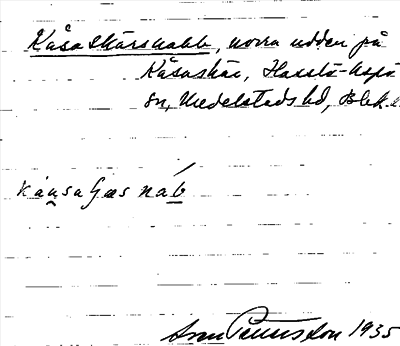 Kåsaskärsnabb, norra udden på
Kåsaskär, Hasslö-Aspö
sn, Medelstads hd, Blek.
kåusaʃæs náb
1935